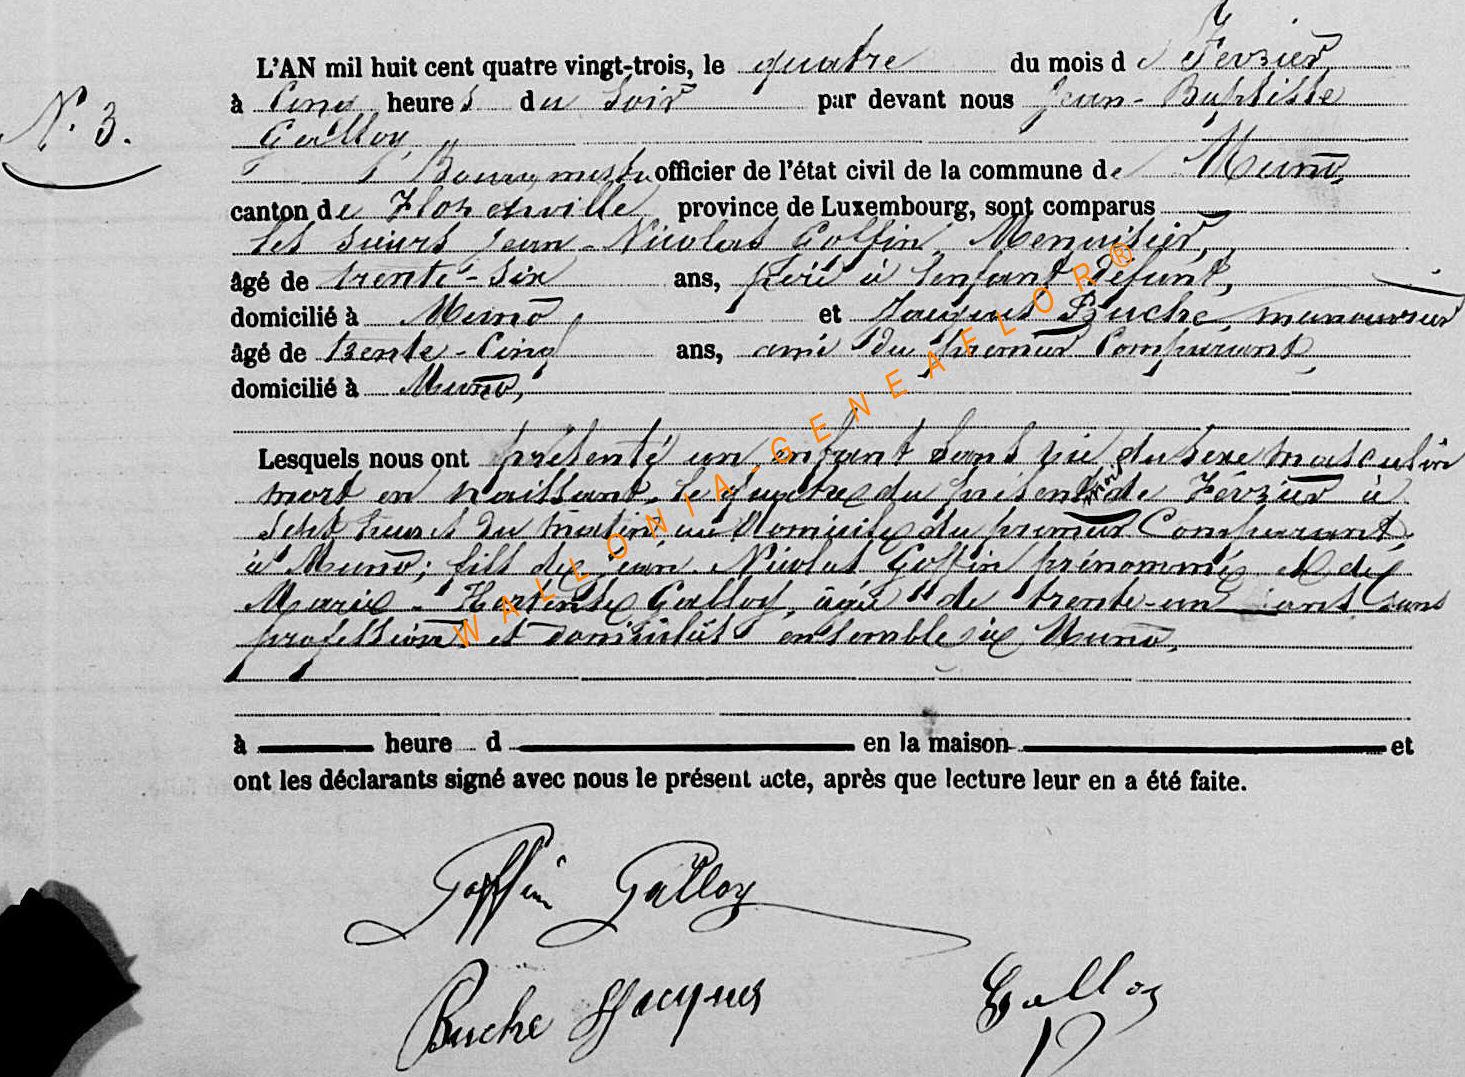 N.° 3.
L'AN mil huit cent quatre vingt-trois, le quatre du mois de Février
à Cinq heures du soir par devant nous Jean-Baptiste
Galloy
Bourgmestre officier de l'état civil de la commune de Muno,
canton de Florenville, province de Luxembourg, sont comparus
les sieurs Jean-Nicolas Goffin, Menuisier,
âgé de trente-six ans, père à l'enfant défunt,
domicilié à Muno et Jacques Buche, manouvrier
âgé de trente-Cinq ans, ami du premier Comparant,
domicilié à Muno,
Lesquels nous ont présenté un enfant sans vie du sexe masculin
mort en naissant, le quatre du présent mois de Février à
sept heures du matin au domicile du premier Comparant,
à Muno; fils de Jean-Nicolas Goffin prénommé et de
Marie-Hortense Galloy, âgée de trente-un ans sans
profession et domiciliés ensemble à Muno.
à heure d en la maison et
ont les déclarants signé avec nous le présent acte, après que lecture leur en a été faite.
Goffin Galloy
Buche Jacques Galloy
WALLONIA-GENEAFLOR®